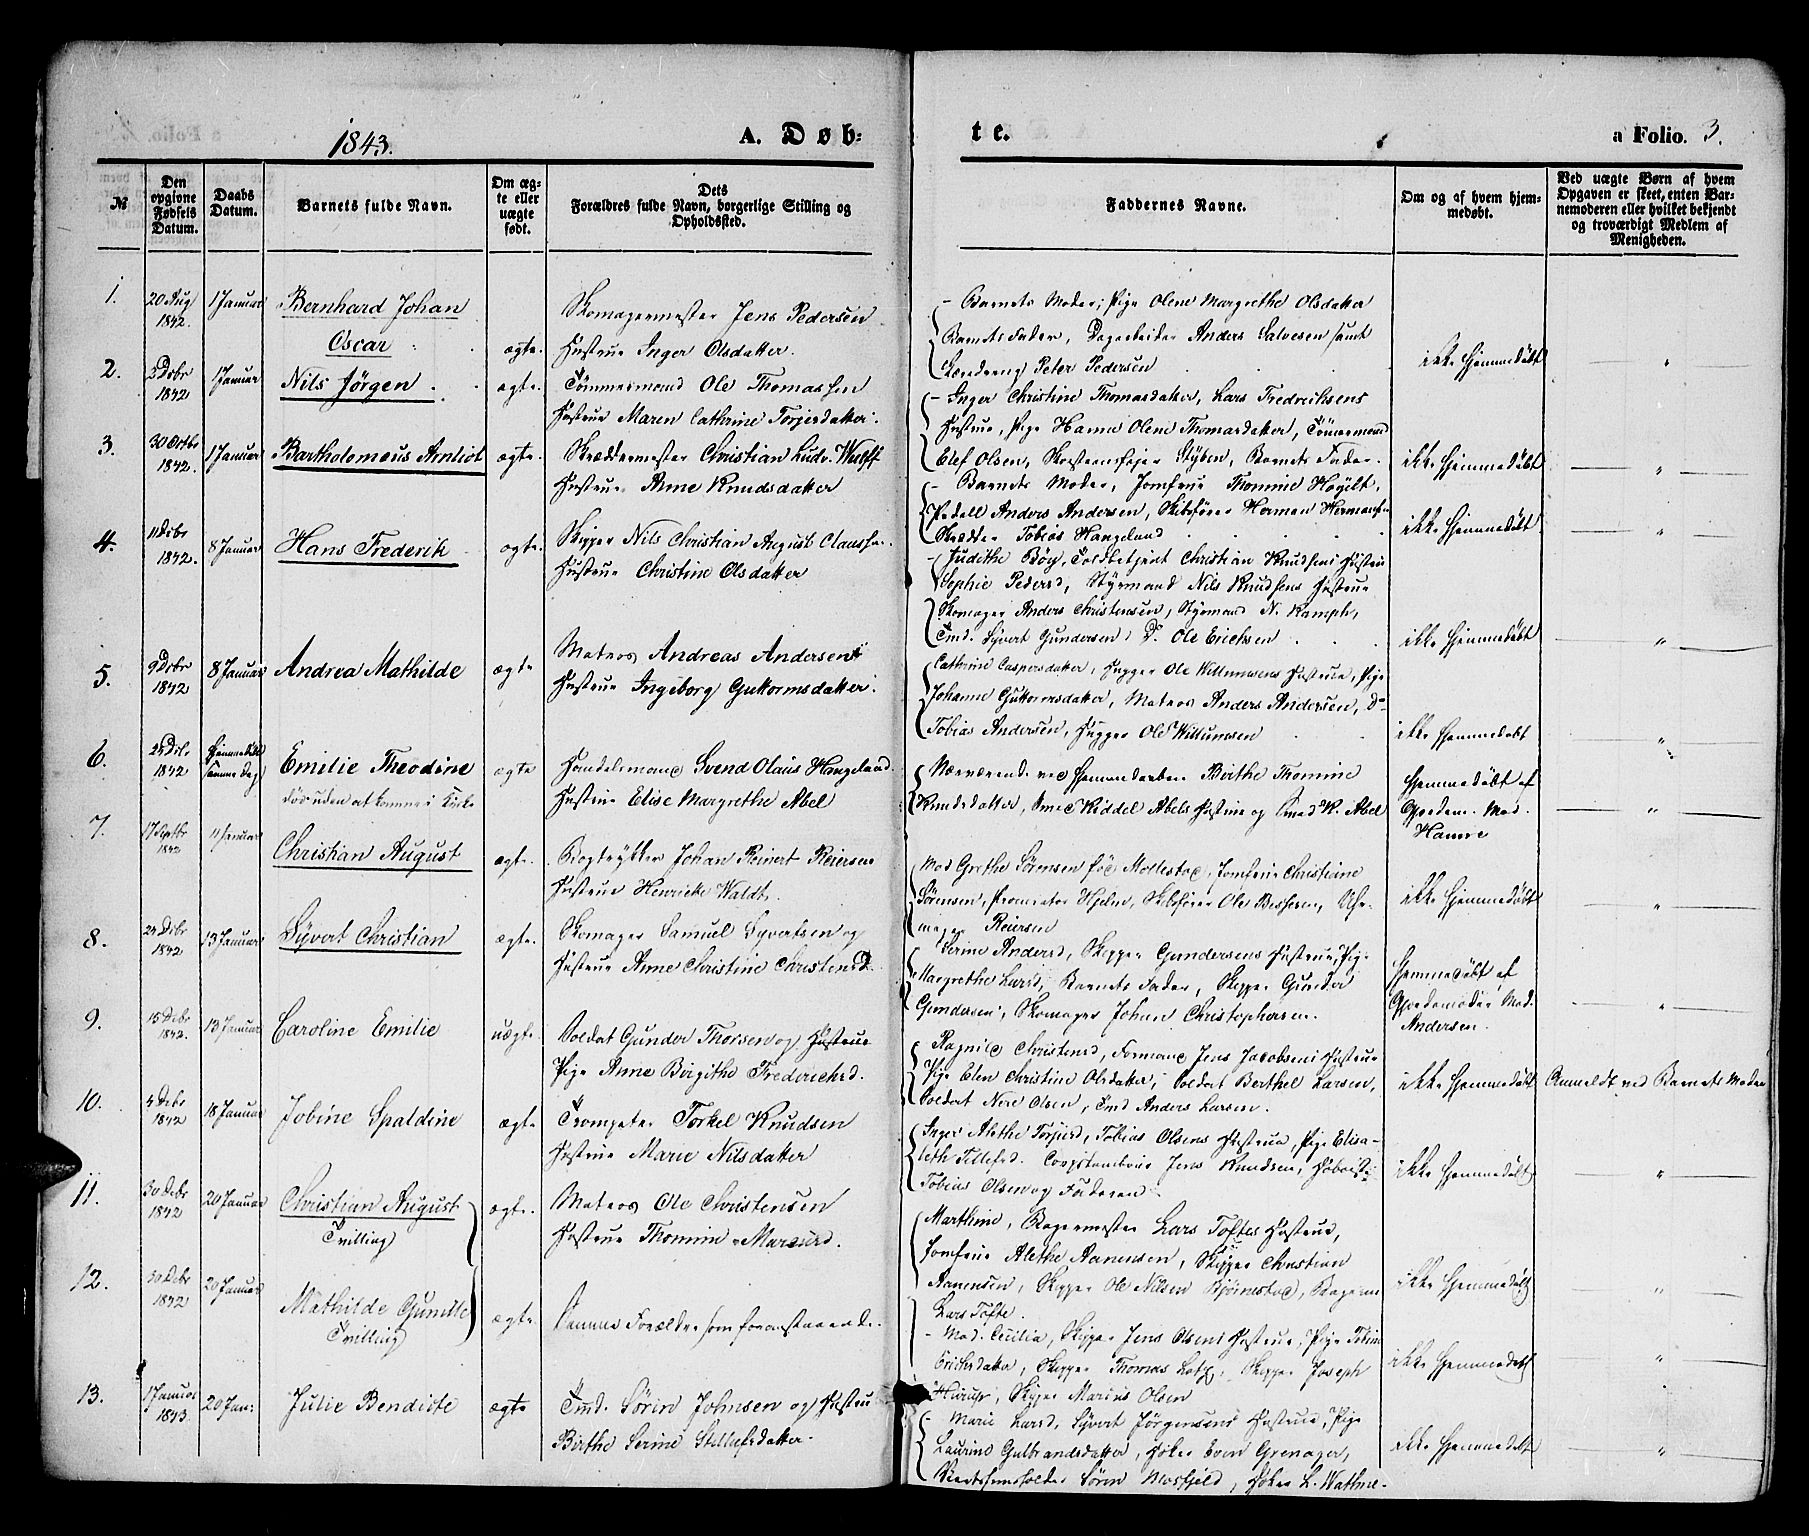 1843.
A. Døb-
te.
a Folio. 3.
№
Den opgivne Fødsels Datum.
Daabs Datum.
Barnets fulde Navn.
Om ægte eller uægte født.
Dets Forældres fulde Navn, borgerlige Stilling og Opholdssted.
Faddernes Navne.
Om og af hvem hjemmedøbt.
Ved uægte Børn af hvem
Opgaven er skeet, enten Bar-
nemoderen eller hvilket bekjendt
og troværdigt Medlem af
Menigheden.
1.
20 Aug
1842.
1 Januar
Bernhard Johan
Oscar
ægte.
Skomagermester Jens Pedersen
Hustrue Inger Olsdatter.
Barnets Moder, Pige Olene Margrethe Olsdatter
Barnets Fader, Dagarbeider Anders Salvesen samt
Læredreng Peter Pedersen
ikke hjemmedøbt
2.
Dcbr
1842
1 Januar
Nils Jörgen
ægte.
Tömmermand Ole Thomassen
Hustrue Maren Cathrine Torjersdatter.
Inger Christine Thomasdatter, Lars Fredriksens
Hustrue, Pige Hanne Olene Thomasdatter, Tömmermand
Elef Olsen, Skorsteensfeier Styben, Barnets Fader.
ikke hjemmedøbt
3.
30 Octbr
1842.
1 Januar
Bartholomæus Arnliot
ægte.
Skreddermester Christian Ludv. Wulff
Hustrue Anne Knudsdatter
Barnets Moder, Jomfrue Thomine Høyelt,
Pedell Anders Andersen, Skibsfører Herman Hermansen
Skredder Tobias Hangeland
ikke hjemmedøbt
4.
11 Dcbr
1842.
8 Januar
Hans Frederik
ægte.
Skipper Nils Christian August Claussen.
Hustrue Christine Olsdatter
Judithe Børy, Toldbetjent Christian Knudsens Hustrue
Sophie Pedersd, Styrmand Nils Knudsens Hustrue
Skomager Anders Christensen, Styrmand N. Kamph,
Tmd. Syvert Gundersen, D. Ole Erichsen
ikke hjemmedøbt
5.
9 Dcbr
1842
8 Januar
Andrea Mathilde
ægte
Matros Andreas Andersen
Hustrue Ingeborg Guttormsdatter.
Cathrine Caspersdatter, Hugger Ole Willumsens Hustrue, Pige
Johanne Guttormsdatter, Matros Anders Andersen, Do
Tobias Andersen, Hugger Ole Willumsen
ikke hjemmedøbt
6.
Dcbr
1842
Hjemmedöbt
samme dag
Emilie Theodine
død uden at komme i Kirke
ægte
Handelsmand Svend Olaus Hangeland.
Hustrue Elise Margrethe Abel
Nærværende ved Hjemmedaaben Birthe Thomine
Knudsdatter, Smed Riddel Abels Hustrue og Smed R. Abel
Hjemmedøbt af
Gjordem. Mad.
Hamre
7.
17 Septbr
1842
11 Januar
Christian August
ægte.
Bogtrykker Johan Reinert Reiersen
Hustrue Henricke Waldt.
Mad Grethe Sörensen föd Mollestad, Jomfrue Christiane
Sörensen, Procurator Hjelm, Skibsfører Ole Bessesen, Uhr-
mager Reiersen
ikke hjemmedøbt
8.
Dcbr
1842
13 Januar
Syvert Christian
ægte.
Skomager Samuel Syvertsen og
Hustrue Anne Christine Christensd.
Serine Andersd, Skipper Gundersens Hustrue, Pige
Margrethe Larsd, Barnets Fader, Skipper Gunder
Gundersen, Skomager Johan Christophersen.
Hjemmedøbt af
Gjordemoder Mad.
Andersen.
9.
15 Dcbr
1842.
13 Januar
Caroline Emilie
uægte.
Soldat Gunder Thorsen og Hustrue
Pige Anne Birgithe Frederichsd.
Ragnild Christensd, Formand Jens Jacobsens Hustrue
Pige Elen Christine Olsdatter, Soldat Berthel Larsen,
Soldat Nere Olsen, Tmd Anders Larsen.
ikke hjemmedøbt
Anmeldt ved Barnets Moder
10.
4 Dcbr
1842
18 Januar
Jobine Spaldine
ægte
Trompeter Torkel Knudsen
Hustrue Marie Nilsdatter
Inger Alethe Torjusd, Tobias Olsens Hustrue, Pige Elisa-
beth Tellefsd. Corpstambour Jens Knudsen,
Tobias Olsen og Faderen
ikke hjemmedøbt
11.
30 Dcbr
1842
20 Januar
Christian August
Tvilling
ægte.
Matros Ole Christensen
Hustrue Thomine Marcusd.
Marthine, Bagermester Lars Toftes Hustrue,
Jomfrue Alethe Aanensen, Skipper Christian
Aanensen, Skipper Ole Nilsen Bjørnestad, Bagerm
Lars Tofte.
ikke hjemmedøbt
12.
30 Dcbr
1842
20 Januar
Mathilde Gunilde
Tvilling
ægte.
Samme Forældre som foranstaaende.
Mad. Cecilia, Skipper Jens Olsens Hustrue, Pige Tobine
Erichsdatter, Skipper Thomas Lotz, Skipper Joseph
Hirup, Skipper Marius Olsen
ikke hjemmedøbt
13.
1 Januar
1843.
20 Jan:
Julie Bendicte
ægte
Tmd. Sörin Johnsen og Hustrue
Birthe Serine Stillufsdatter.
Marie Larsd, Syvert Jörgensens Hustrue, Pige
Laurine Gulbrandsdatter, Høker Even Grenager,
Værtshuusholder Sören Mosfjeld, Høker L. Wattne.
ikke hjemmedøbt